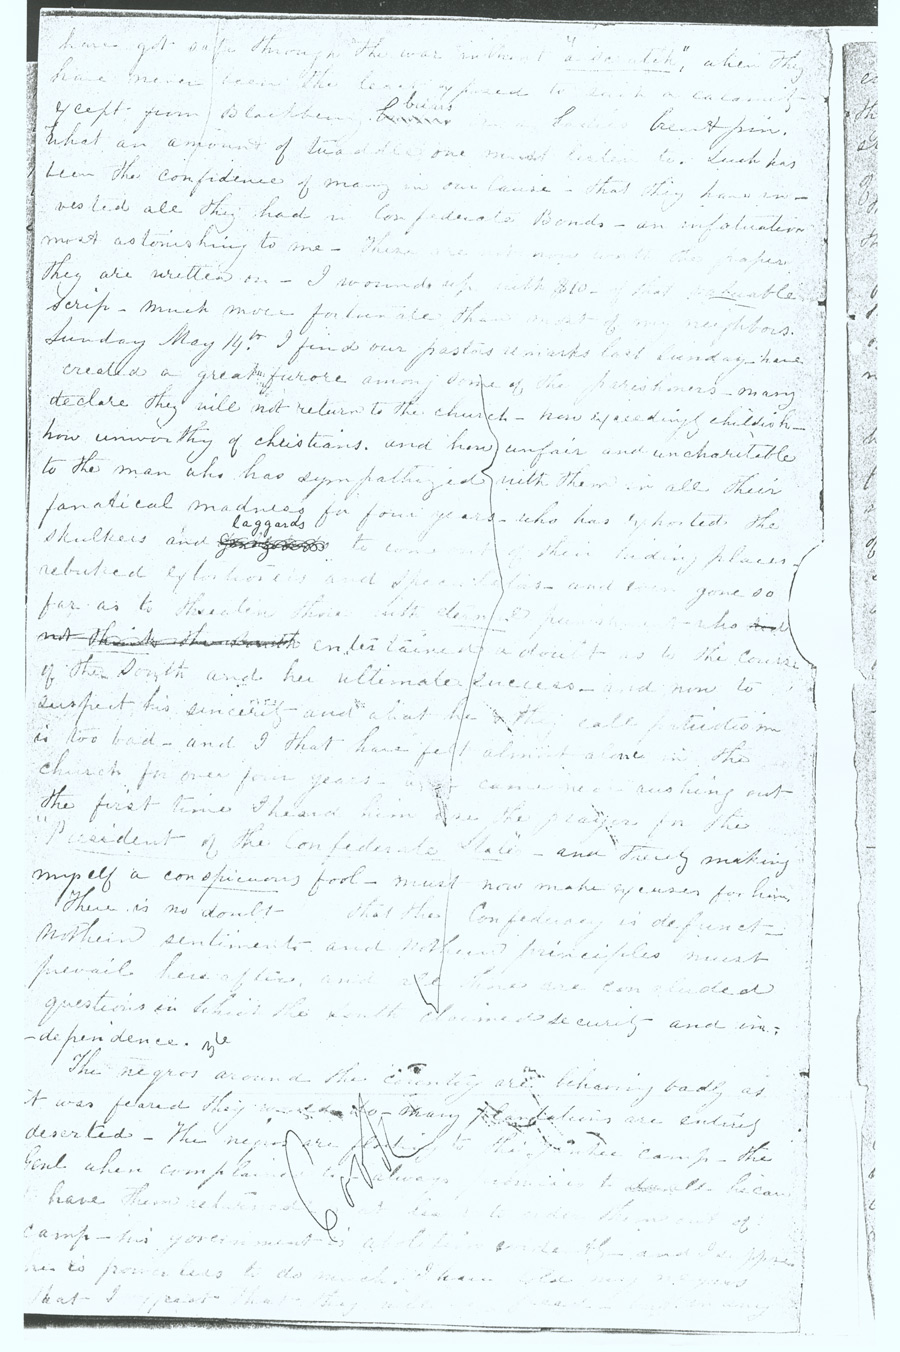 have got safe through the war without "a scratch", when they
have never been the least exposed to such a calamity
except from Blackberry briars or a Ladies breast pin.
What an amount of twaddle one must listen to. Such has
been the confidence of many in our cause - that they have in-
vested all they had in Confederate Bonds - an infatuation
most astonishing to me - These are not now worth the paper
they are written on - I wound up with $10 - of that valuable
scrip - much more fortunate than most of my neighbors.
Sunday May 14th. I find our pastors remarks last Sunday - have
created a great furore among some of the parishoners - many
declare they will not return to the church - how exceedingly childish -
how unworthy of christians. and how unfair and uncharitable
to the man who has sympathized with them in all their
fanatical madness for four years - who has exhorted the
skulkers and laggards to come out of their hiding places -
rebuked extortioners and speculators - and even gone so
far as to threaten those with punishment - who
not think the South entertained a doubt as to the course
of the South and her ultimate success - and now to
suspect his sincerity and what he & they call patriotism
is too bad - and I that have felt almost alone in the
church for over four years - came near rushing out
the first time I heard him use the prayer for the
"President of the Confederate States - and thereby making
myself a conspicuous fool - must now make excuses for him
There is no doubt that the Confederacy is defunct -
Nothern sentiments and Nothern principles must
prevail hereafter, and all those are concluded
questions in which the south claimed security and in-
-dependence.
The negros around the country are behaving badly as
it was feared they would do - many plantations are entirely
deserted - The negros are flocking to the Yankee camp - the
Genl when complained to - always promises to
have them returned to order them out of
camp - his government is abolition and I suppose
he is powerless to do much. I have told my negros
that I expect that they will
Cook